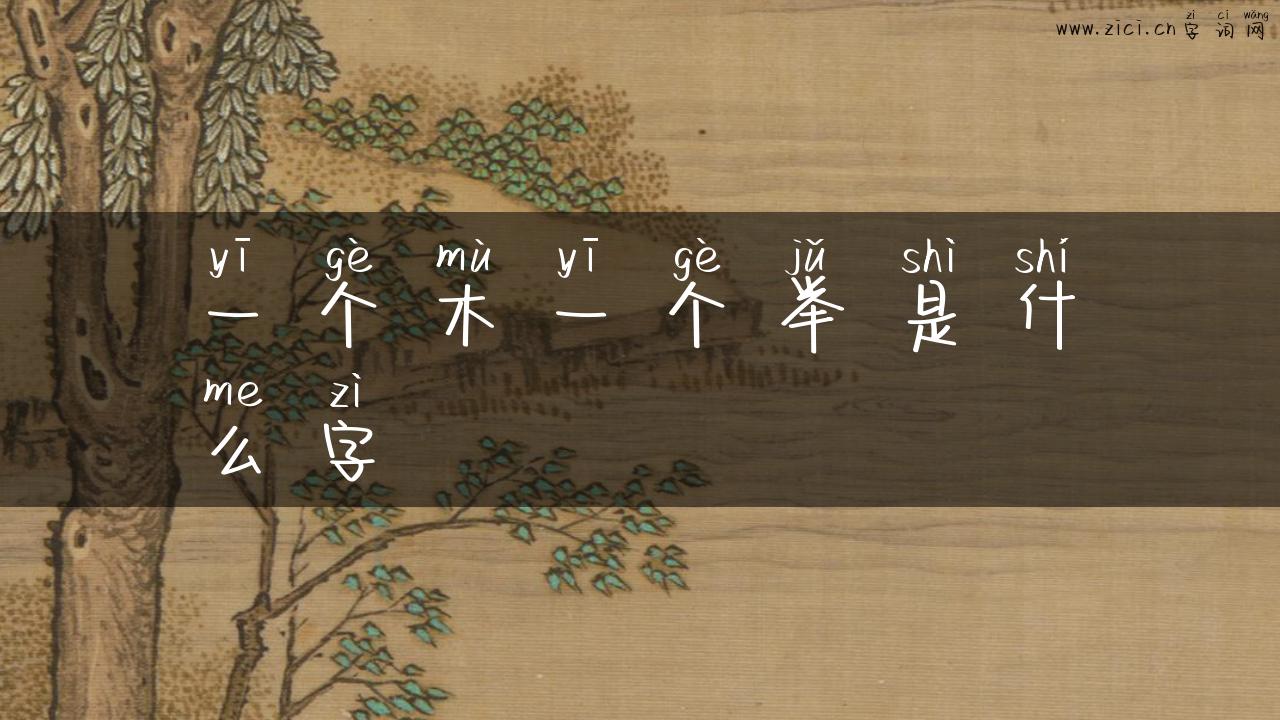 zì cí wǎng
www.zici.cn 字词网
yī gè mù yī gè jǔ shì shí
一个木一个举是什
me zì
么字